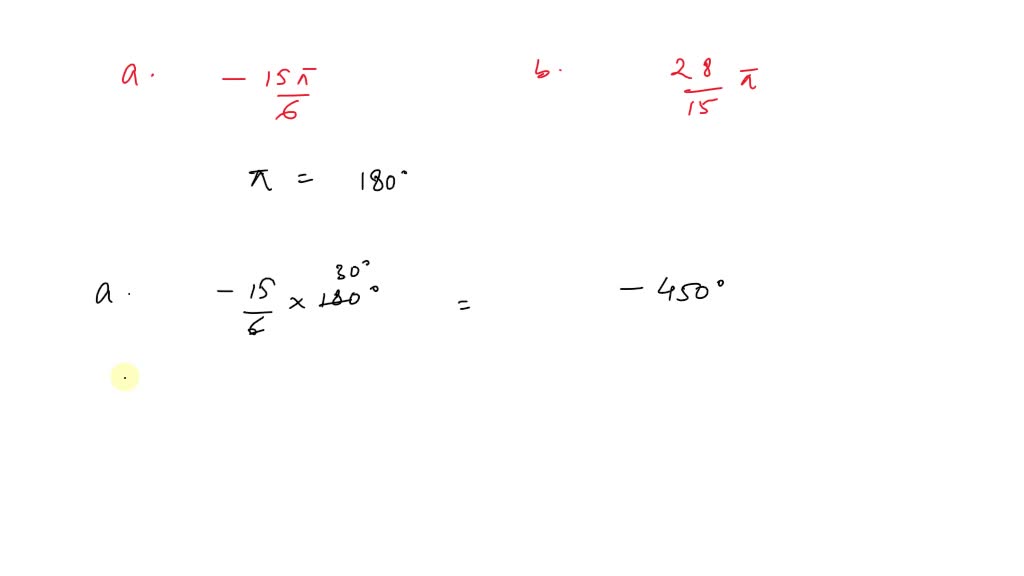 a. - 15π/6 b. 28/15 π
π = 180°
a. - 15/6 × 180° 30° = - 450°